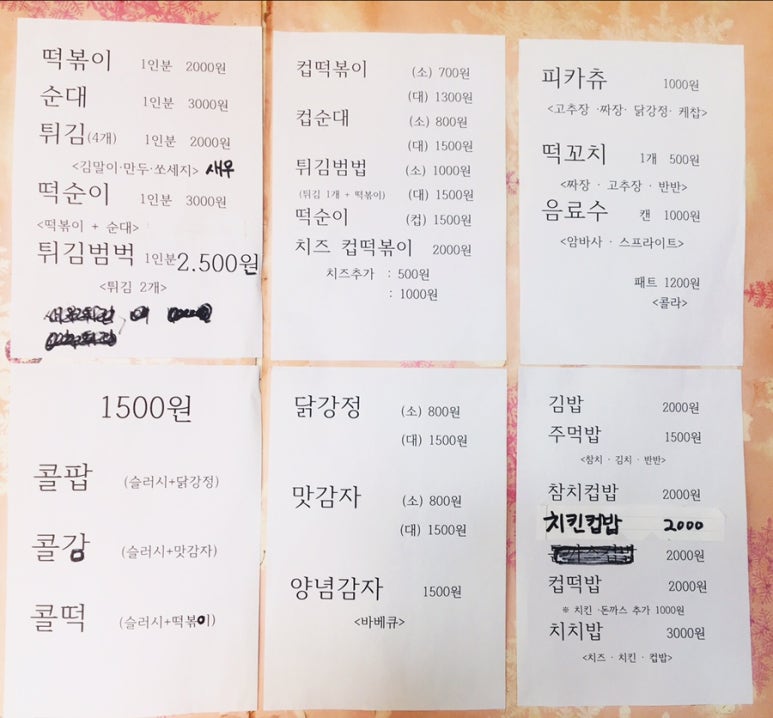 떡볶이 1인분 2000원
순대 1인분 3000원
튀김(4개) 1인분 2000원
<김말이·만두·쏘세지> 새우
떡순이 1인분 3000원
<떡볶이 + 순대>
튀김범벅 1인분 2.500원
<튀김 2개>
컵떡볶이 (소) 700원
(대) 1300원
컵순대 (소) 800원
(대) 1500원
튀김범법 (소) 1000원
(튀김 1개 + 떡볶이) (대) 1500원
떡순이 (컵) 1500원
치즈 컵떡볶이 2000원
치즈추가 : 500원
: 1000원
피카츄 1000원
<고추장 ·짜장· 닭강정· 케찹>
떡꼬치 1개 500원
<짜장 · 고추장 · 반반>
음료수 캔 1000원
<암바사 · 스프라이트>
패트 1200원
<콜라>
1500원
콜팝 (슬러시+닭강정)
콜감 (슬러시+맛감자)
콜떡 (슬러시+떡볶이)
닭강정 (소) 800원
(대) 1500원
맛감자 (소) 800원
(대) 1500원
양념감자 1500원
<바베큐>
김밥 2000원
주먹밥 1500원
<참치 · 김치 · 반반>
참치컵밥 2000원
치킨컵밥 2000
2000원
컵떡밥 2000원
※ 치킨 ·돈까스 추가 1000원
치치밥 3000원
<치즈 · 치킨 · 컵밥>